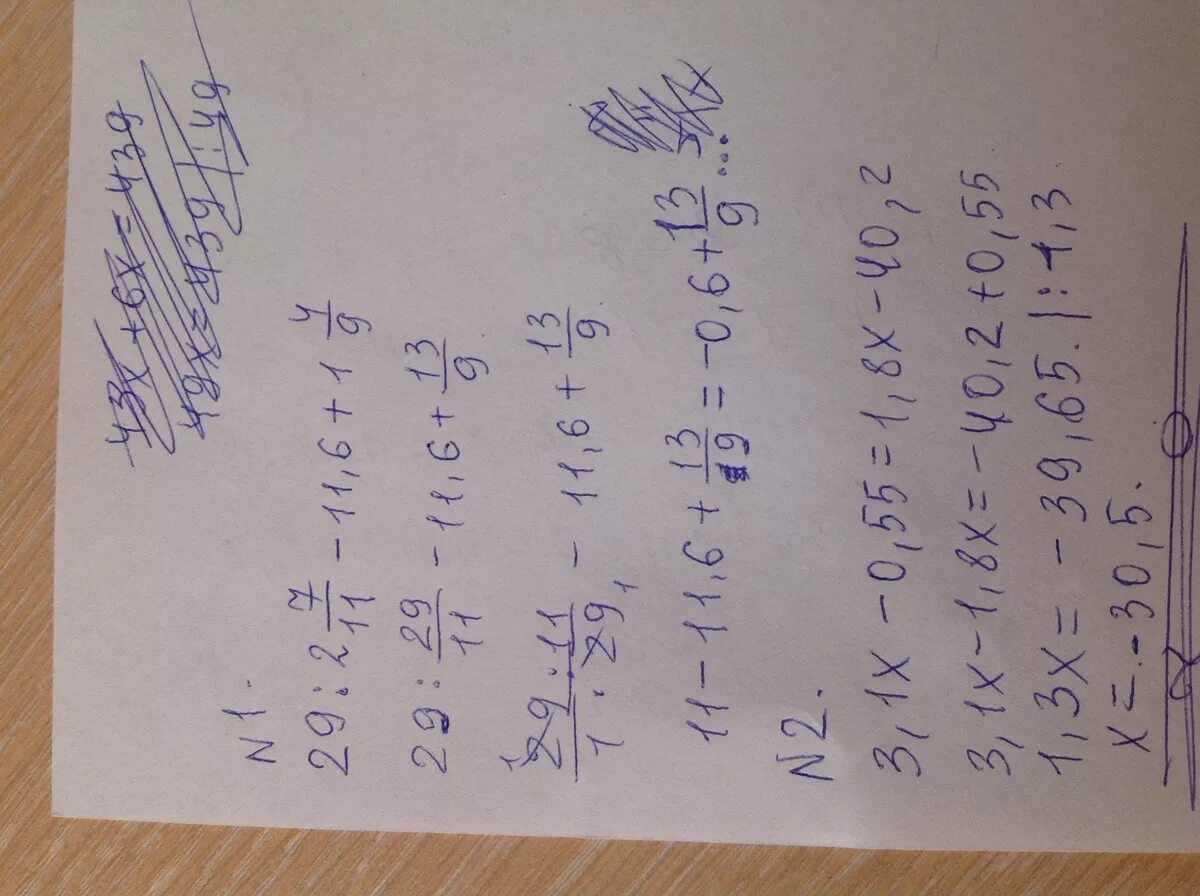 43x+6x=439
49x=439|:49
N1.
29:2 7/11 -11,6+1 4/9
29: 29/11 -11,6+ 13/9.
29/1 · 11/29 - 11,6+ 13/9.
11-11,6+ 13/9 =-0,6+ 13/9 ...
N2.
3,1x-0,55=1,8x-40,2
3,1x-1,8x=-40,2+0,55
1,3x=-39,65.|:1,3
x=-30,5.